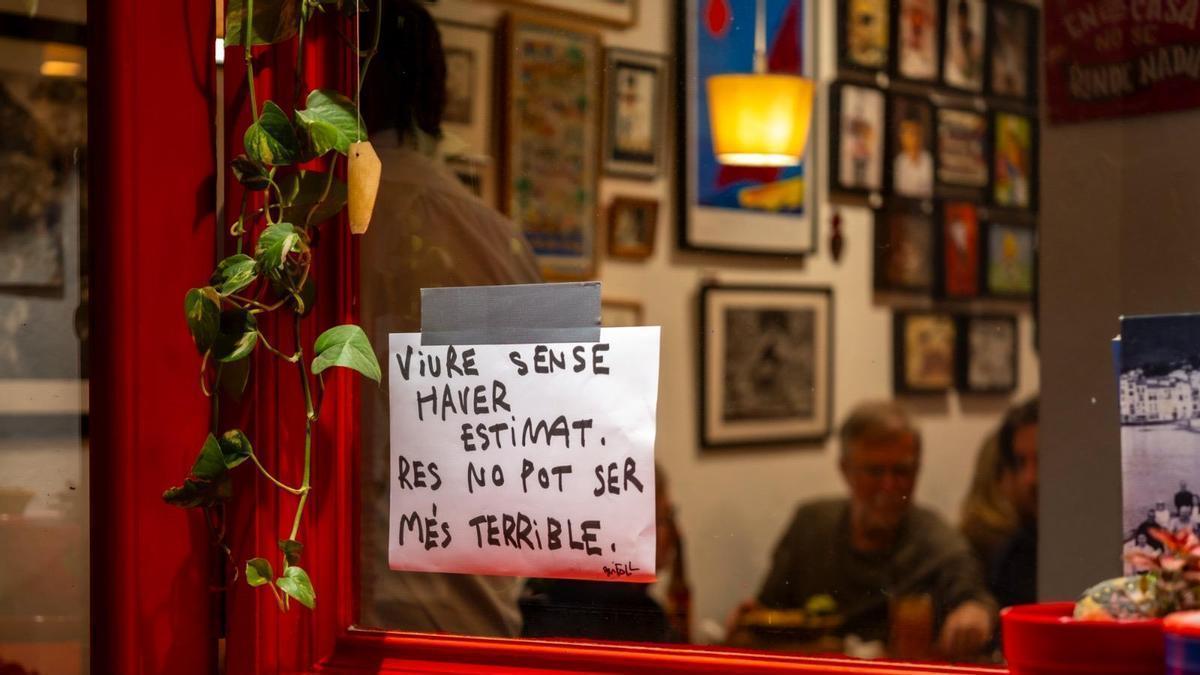 EN CASA
NO SE
RINDE NADIE
VIURE SENSE
HAVER
ESTIMAT.
RES NO POT SER
MÉS TERRIBLE.